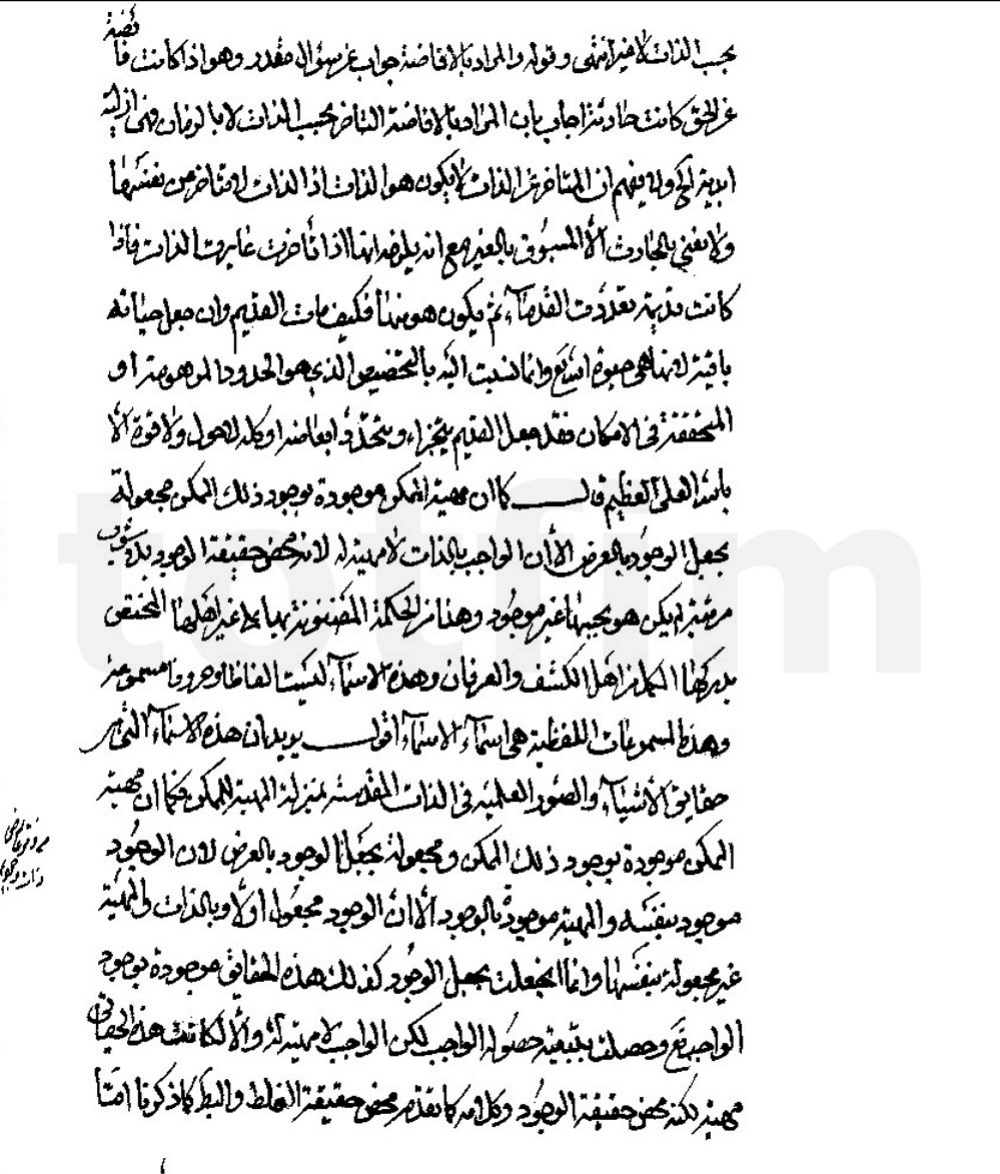 بحسب الذات لا غير انتهى وقوله والمراد بالافاضة جواب عن سؤال مقدر وهو اذا كانت فائضة
عن الحق كانت حادثة اجاب بان المراد بالافاضة التاخر بحسب الذات لا بالزمان فهى ازلية
ابدية الخ ولا يفهم ان المتاخر عن الذات لا يكون هو الذات اذ الذات لا تتاخر من نفسها
ولا نعنى بالحادث الا المسبوق بالغير مع انه يلزمه انها اذا تأخرت غايرت الذات فاذا
كانت قديمة تعددت القدماء ثم يكون هو منها فكيف مات القديم وان جعل حياته
باقية لانها هى حيوة الله تع وانما نسبت اليه بالتخصيص الذي هو الحدود الموهومة او
المتحققة فى الامكان فقد جعل القديم يتجزاء ويتحدد ابعاضه او كله لا حول ولا قوة الا
بالله العلى العظيم قال كما ان مهية الممكن موجودة بوجود ذلك الممكن مجعولة
بجعل الوجود بالعرض الا أن الواجب بالذات لا مهية له لانه محض حقيقة الوجود بلا شوب
مرتبة لم يكن هو بحسبها غير موجود وهذا من الحكمة المضنون بها على غير اهلها المختص
بدركها الكمل من اهل الكشف والعرفان وهذه الاسماء ليست الفاظا وحروفا مسموعة
وهذا المسموعات اللفظية هى اسماء الاسماء اقول يريد ان هذه الاسماء التى هى
حقايق الاشياء والصور العلمية فى الذات المقدسة بمنزلة المهية للممكن فكما ان مهية
الممكن موجودة بوجود ذلك الممكن ومجعولة بجعل الوجود بالعرض لان الوجود
موجود بنفسه والمهية موجودة بالوجود الا ان الوجود مجعول اولا وبالذات والمهية
غير مجعولة بنفسها وانما انجعلت بجعل الوجود كذلك هذه الحقايق موجودة بوجود
الواجب تع وحصلت بتبعية حصوله الواجب لكن الواجب لا مهية له والا لكانت هذه الحقايق
مهية لكنه محض حقيقة الوجود وكلامه كما تقدم محض حقيقة الغلط والبط كما ذكرنا امّا